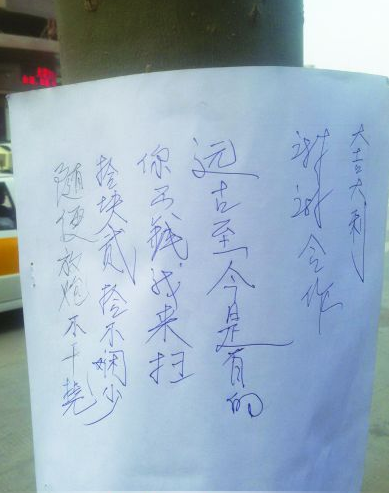 随便放炮不干挠
拾块贰拾不嫌少
你出钱我来扫
远古至今是有的
谢谢合作
大吉大利